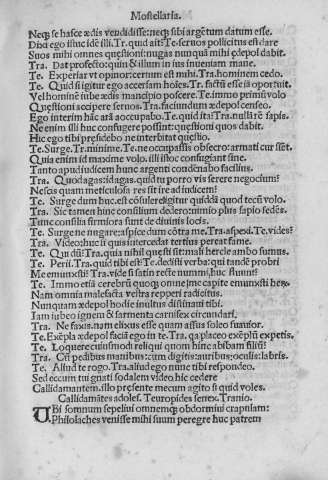 Mostellaria.
Neqꝫ se hasce ædis vendidisse: neqꝫ sibi argẽtum datum esse.
Dixi ego istuc idẽ illi. Tr. quid ait: Te. seruos pollicitus est dare
Suos mihi omnes quęstioni: nugas nunquã mihi ędepol dabit.
Tra. Dat profecto: quin & illum in ius inueniam mane.
Te. Experiar vt opinor: certum est mihi. Tra. hominem cedo.
Te. Quid si igitur ego accersam hoĩes. Tr. factũ esse iã oportuit.
Vel hominẽ iube ædis mancipio poscere. Te. immo primũ volo
Quęstioni accipere seruos. Tra. faciundum ædepol censeo.
Ego interim hãc arã occupabo. Te. quid ita: Tra. nulla rẽ sapis.
Ne enim illi huc confugere possint: quęstioni quos dabit.
Hic ego tibi pręsidebo ne interbitat quęstio.
Te. Surge. Tr. minime. Te. ne occupassis obsecro: armati cur sẽt.
Quia enim id maxime volo. illi istoc confugiant sine.
Tanto apud iudicem hunc argenti condẽnabo facilius.
Tra. Quod agas: id agas. quid tu porro vis serere negocium?
Nescis quam meticulosa res sit ire ad iudicem?
Te. Surge dum huc. est cõsulere igitur quiddã quod tecũ volo.
Tra. Sic tamen hinc consilium dedero: nimio plus sapio sedẽs.
Tum consilia firmiora sunt de diuinis locis.
Te. Surge ne nugare: aspice dum cõtra me. Tra. aspexi. Te. vides?
Tra. Video: huc si quis intercedat tertius pereat fame.
Te. Quidũ: Tra. quia nihil quęsti sit: mali hercle ambo sumus.
Te. Perii. Tra. quid tibi est: Te. dedisti verba: qui tandẽ probri
Me emunxti: Tra. vide si satin recte numni, huc fluunt?
Te. Immo etiã cerebrũ quoqꝫ omne ĩme capite emunxti hex.
Nam omnia malefacta vestra repperi radicitus.
Nunquam ædepol hodie inultus distinani tibi.
Iam iubeo ignem & sarmenta carnifex circundari.
Tra. Ne faxis. nam elixus esse quam assus soleo suauior.
Te. Exẽpla ædepol faciã ego in te. Tra. qa placeo exẽplũ expetis.
Te. Loquere cuiusmodi reliqui quom hinc abibam filiũ?
Tra. Cũ pedibus manibus: cum digitis: auribus: oculis: labris.
Te. Aliud te rogo. Tra. aliud ego nunc tibi respondeo.
Sed eccum tui gnati sodalem video huc cedere
Callidamantem. illo pręsente mecum agito si quid voles.
Callidamãtes adolef. Teuropides senex. Tranio.
UBi somnum sepeliui omnemqꝫ obdormiui crapulam:
Philolaches venisse mihi suum peregre huc patrem